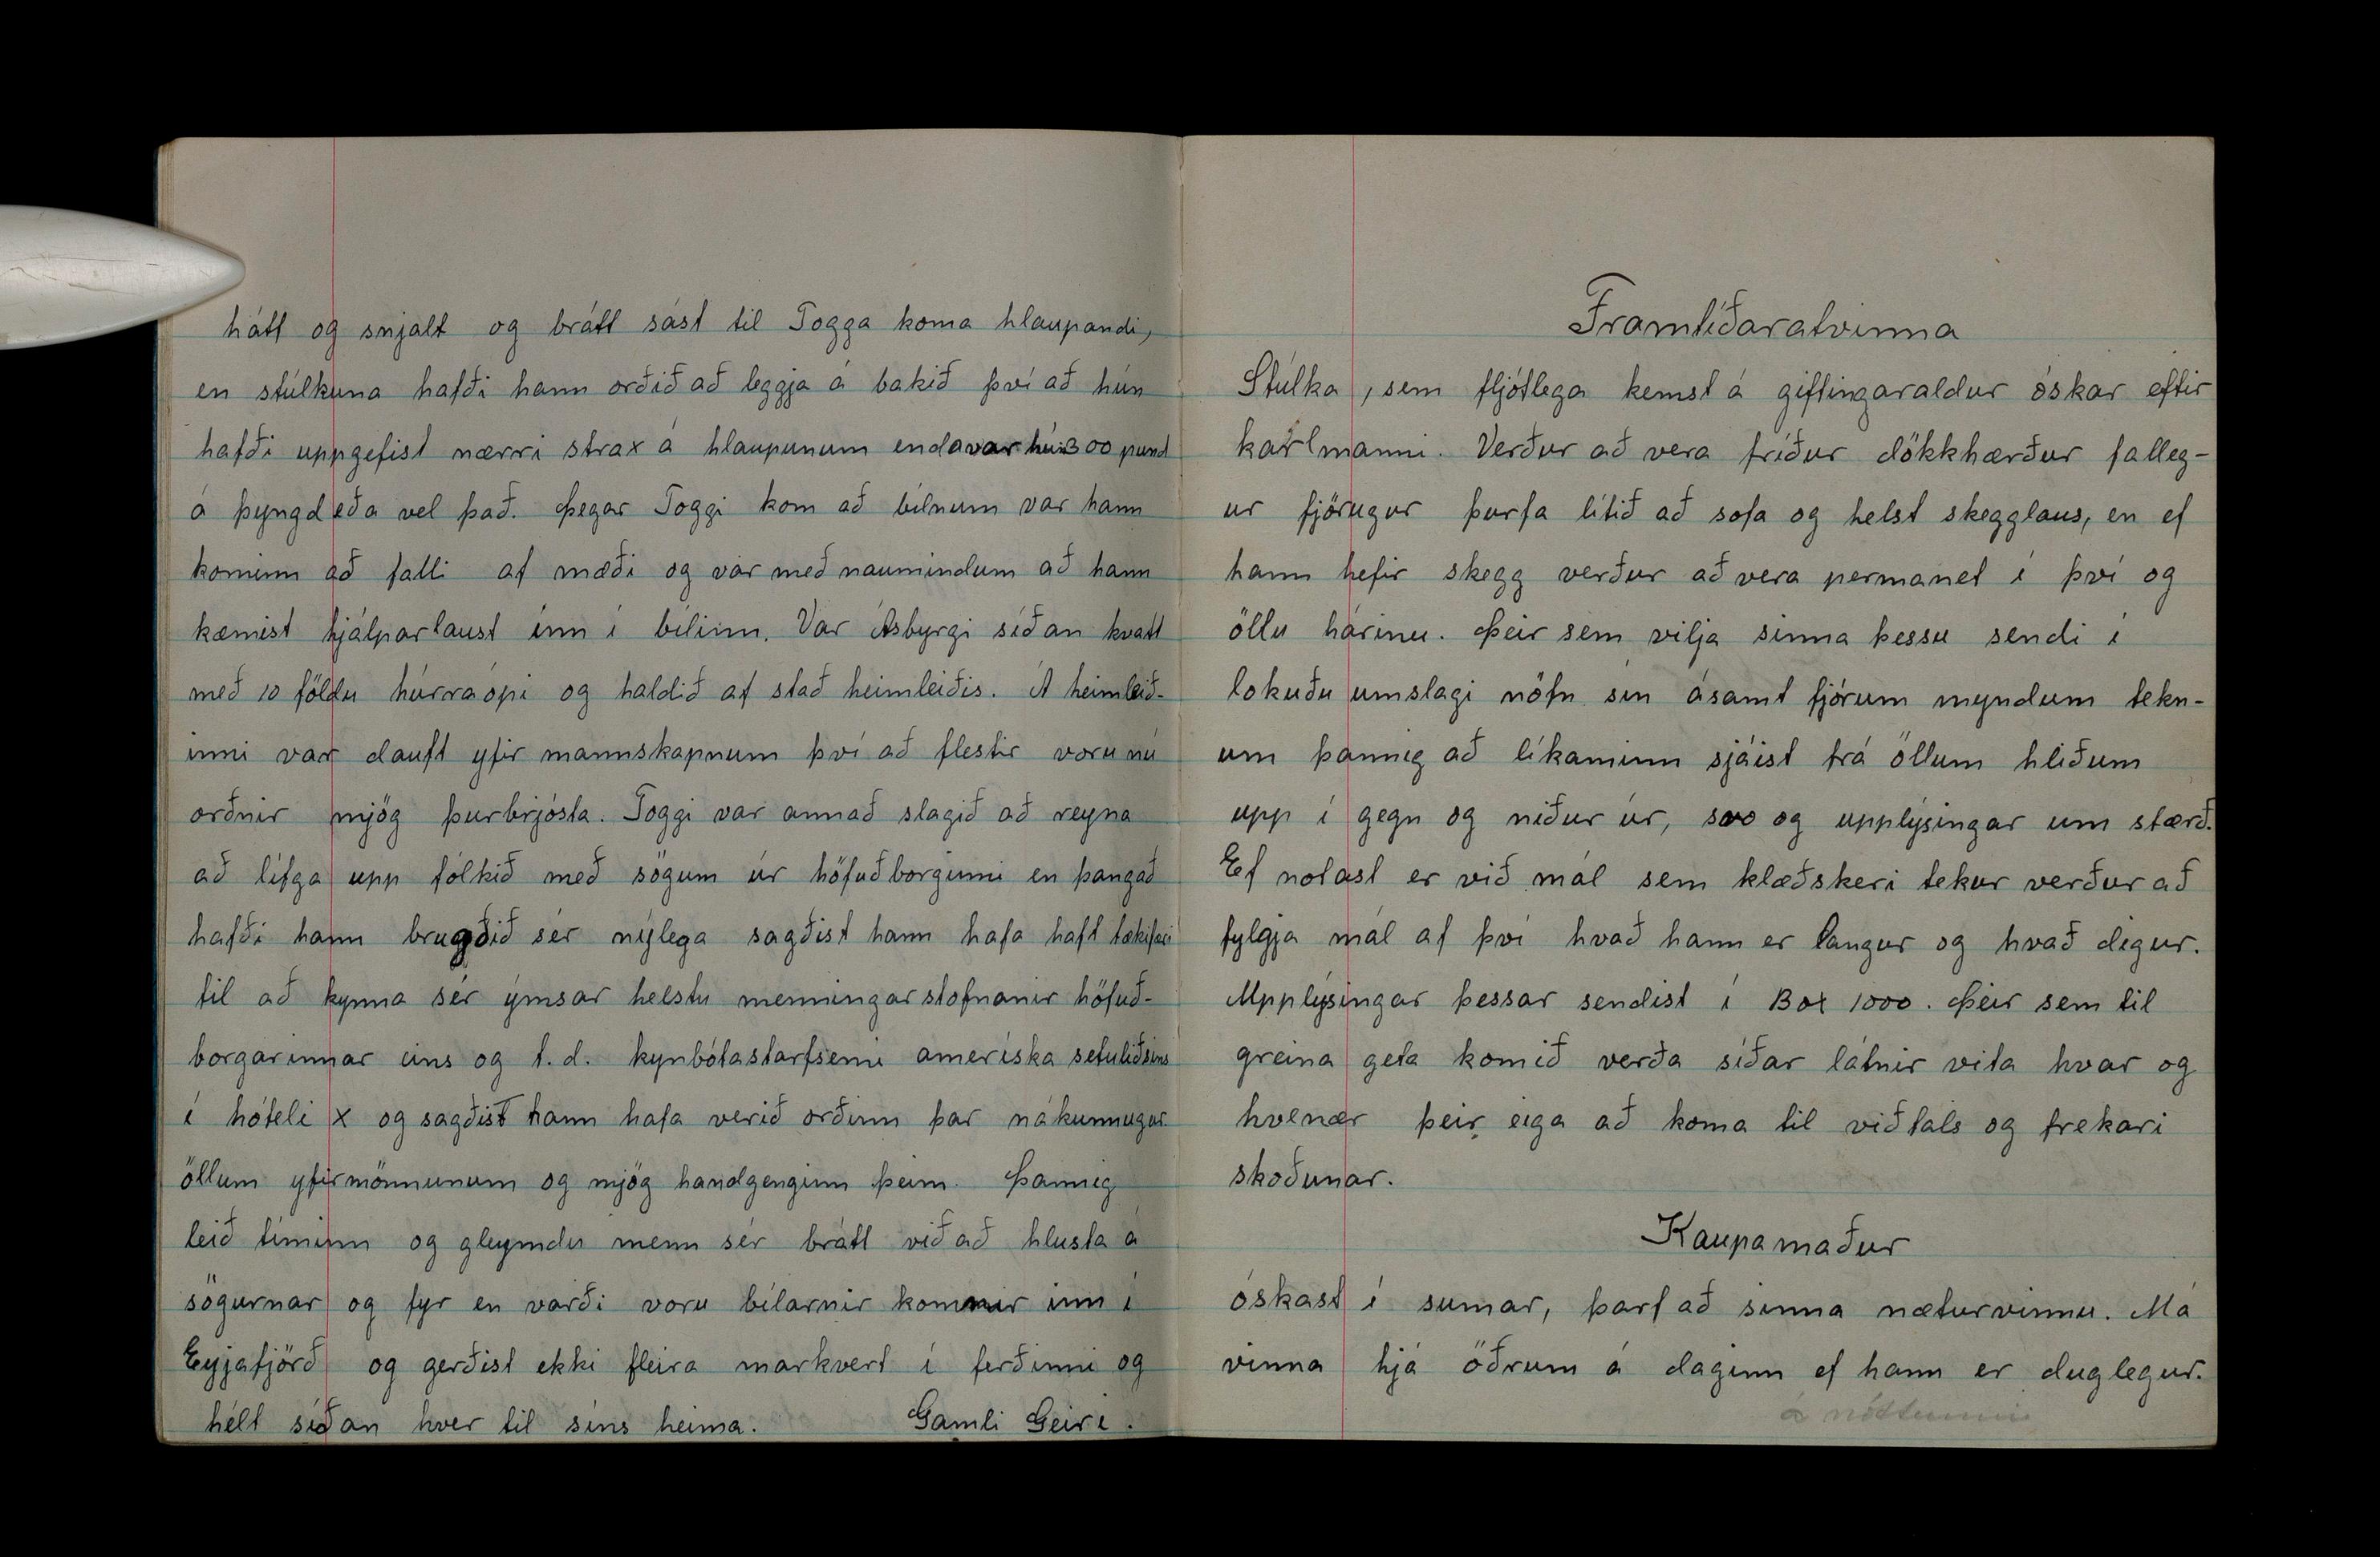 hátt og snjalt og brátt sást til Togga koma hlaupandi,
en stúlkuna hafði hann orðið að leggja á bakið því að hún
hafði uppgefist nærri strax á hlaupunum enda var hún 300 pund
á þyngd eða vel það. Þegar Toggi kom að bílnum var hann
kominn að falli af mæði og var með naumindum að hann
kæmist hjálparlaust inn í bílinn. Var Ásbyrgi síðan kvatt
með 10 földu húrraópi og haldið af stað heimleiðis. Á heimleið-
inni var dauft yfir mannskapnum því að flestir voru nú
orðnir mjög þurbrjósta. Toggi var annað slagið að reyna
að lífga upp fólkið með sögum úr höfuðborginni en þangað
hafði hann brugðið sér nýlega sagðist hann hafa haft tækifæri
til að kynna sér ýmsar helstu menningarstofnanir höfuð-
borgarinnar eins og t.d. kynbótastarfsemi ameríska setuliðsins
í hóteli X og sagðist hann hafa verið orðinn þar nákunnugur
öllum yfirmönnunum og mjög handgenginn þeim. Þannig
leið tíminn og gleymdu menn sér brátt við að hlusta á
sögurnar og fyr en varði voru bílarnir komnir inn í
Eyjafjörð og gerðist ekki fleira markvert í ferðinni og
hélt síðan hver til síns heima. Gamli Geiri.
Framtíðaratvinna
Stúlka, sem fljótlega kemst á giftingaraldur óskar eftir
karlmanni. Verður að vera fríður dökkhærður falleg-
ur fjörugur þurfa lítið að sofa og helst skegglaus, en ef
hann hefir skegg verður að vera permanet í því og
öllu hárinu. Þeir sem vilja sinna þessu sendi í
lokuðu umslagi nöfn sín ásamt fjórum myndum tekn-
um þannig að líkaminn sjáist frá öllum hliðum
upp í gegn og niður úr, svo og upplýsingar um stærð.
Ef notast er við mál sem klæðskeri tekur verður að
fylgja mál af því hvað hann er langur og hvað digur.
Upplýsingar þessar sendist í Box 1000. Þeir sem til
greina geta komið verða síðar látnir vita hvar og
hvenær þeir eiga að koma til viðtals og frekari
skoðunar.
Kaupamaður
óskast í sumar, þarf að sinna næturvinnu. Má
vinna hjá öðrum á daginn ef hann er duglegur.
á nóttunni